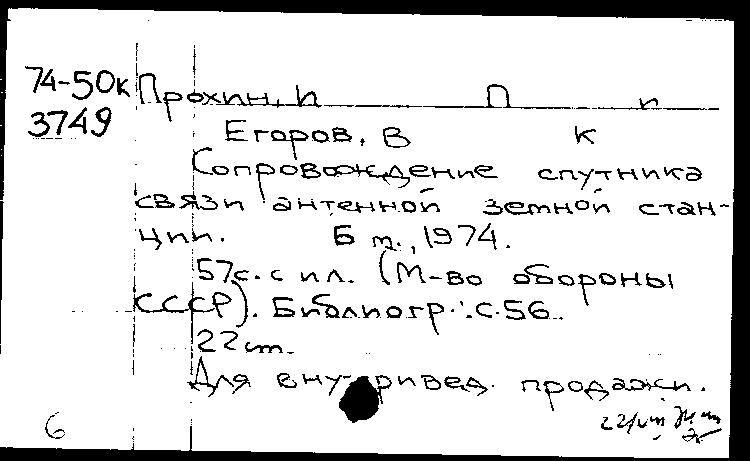 74-50к Прохин, П п
3749
Егоров, В к
Сопровождение спутника
связи антенной земной стан-
ции. Б м., 1974.
57с. с ил. (М-во обороны
СССР). Библиогр.: с. 56.
22 cm.
Для внутривед. продажи.
6